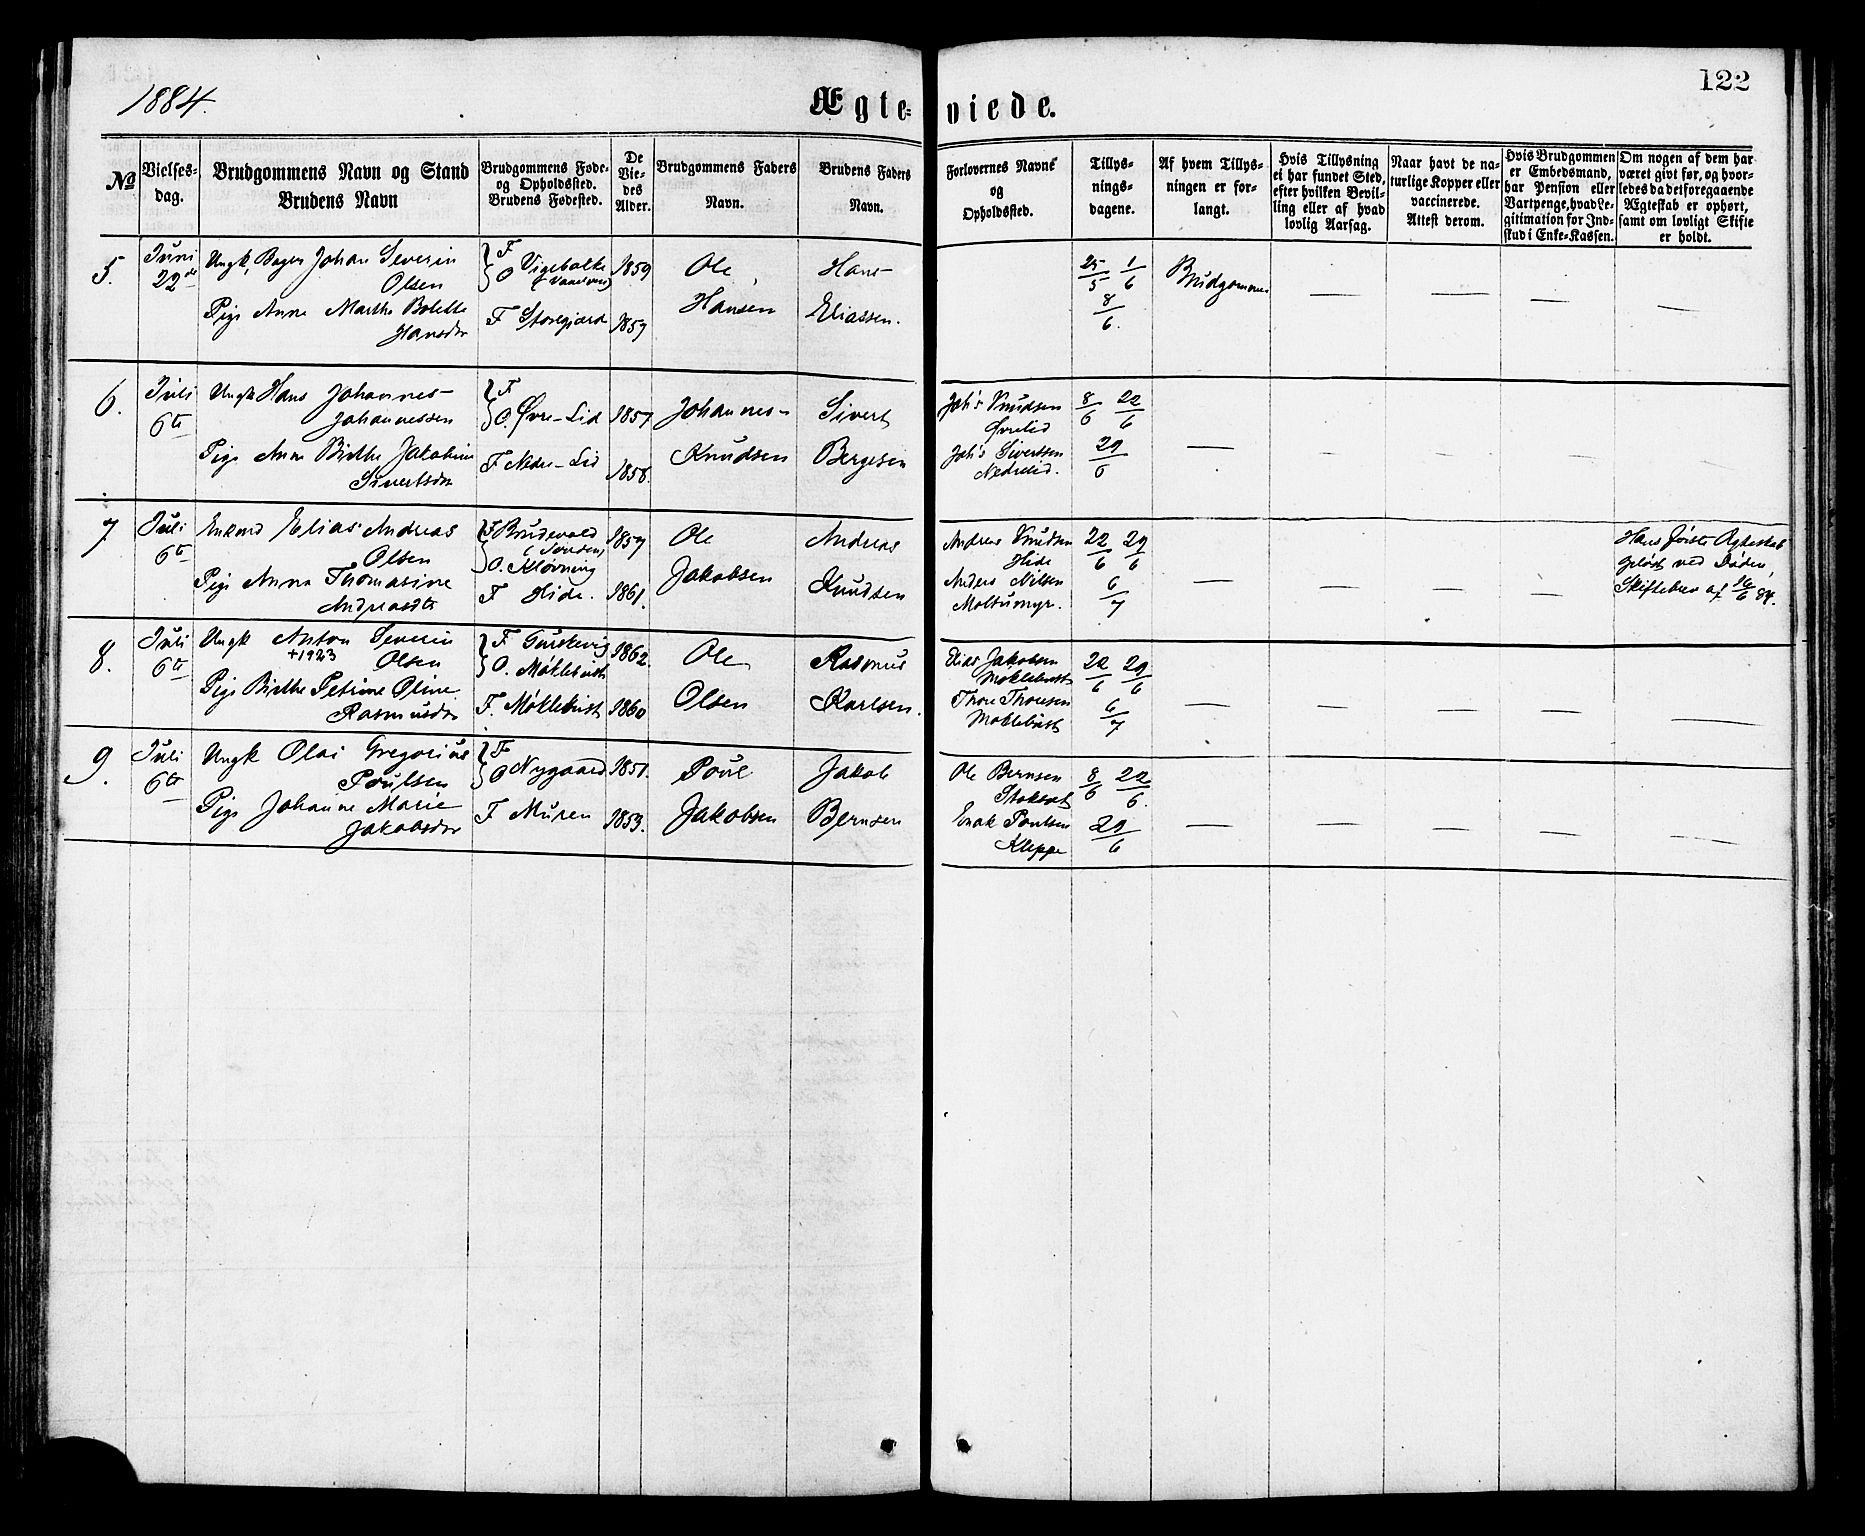 1884.
Ægte-
viede.
122
No
Vielses-
dag.
Brudgommens Navn og Stand
Brudens Navn
Brudgommens Føde-
og Opholdssted.
Brudens Fødested.
De
Vie-
des
Alder.
Brudgommens Faders
Navn.
Brudens Faders
Navn.
Forlovernes Navne
og
Opholdssted.
Tillys-
nings-
dagene.
Af hvem Tillys-
ningen er for-
langt.
Hvis Tillysning
ei har fundet Sted,
efter hvilken Bevil-
ling eller af hvad
lovlig Aarsag.
Naar havt de na-
turlige Kopper eller
vaccinerede.
Attest derom.
Hvis Brudgommen
er Embedsmand,
har Pension eller
Vartpenge, hvad Le-
gitimation for Ind-
skud i Enke-Kassen.
Om nogen af dem har
været givt før, og hvor-
ledes da det foregaaende
Ægteskab er ophørt,
samt om lovligt Skifte
er holdt.
5.
Juni
22de
Ungk, Bager Johan Severin
Olsen
Pige Anne Marthe Bolette
Hansdtr
F
O Vigebakke
F Storegjærd
1859
1857
Ole
Hansen
Hans
Eliassen.
25/5 1/6
8/6.
Brudgommen
— — — —
6.
Juli
6te
Ungk Hans Johannes
Johannessen
Pige Anne Birthe Jakobine
Sivertsdtr
F
O. Øvre-Lid
F Nedre-Lid
1857
1858.
Johannes
Knudsen
Sivert
Bergesen
Joh's Knudsen
Øvrelid
Joh's Sivertssen
Nedrelid.
8/6 22/6
29/6
— — — — —
7
Juli
6te
Enkemd Elias Andreas
Olsen
Pige Anna Thomasine
Andreasdtr
F Brudevold
O. Kløvning
F Hide.
1857
1861.
Ole
Jakobsen
Andreas
Knudsen
Andreas Knudsen
Hide
Anders Nilsen
Moltumyr.
22/6 29/6
6/7
— — — —
Hans første Ægteskab
opløst ved Døden,
Skiftebrev af 16/6 84.
8.
Juli
6te
Ungk Anton Severin
+1923 Olsen
Pige Birthe Petrine Oline
Rasmusdtr
F Gurskevig
O. Møklebust
F. Møklebust
1862.
1860
Ole
Olsen
Rasmus
Karlsen.
Elias Jakobsen
Møklebust
Thore Thoresen
Møklebust
22/6 29/6
6/7
— — — — —
9.
Juli
6te
Ungk Olai Gregorius
Poulsen
Pige Johanne Marie
Jakobsdtr
F
O Nygaard
F Muren
1851.
1853.
Poul
Jakobsen
Jakob
Bernsen
Ole Bernsen
Stoksæt
Enok Poulsen
Kleppe
8/6 22/6.
29/6
— — — — —